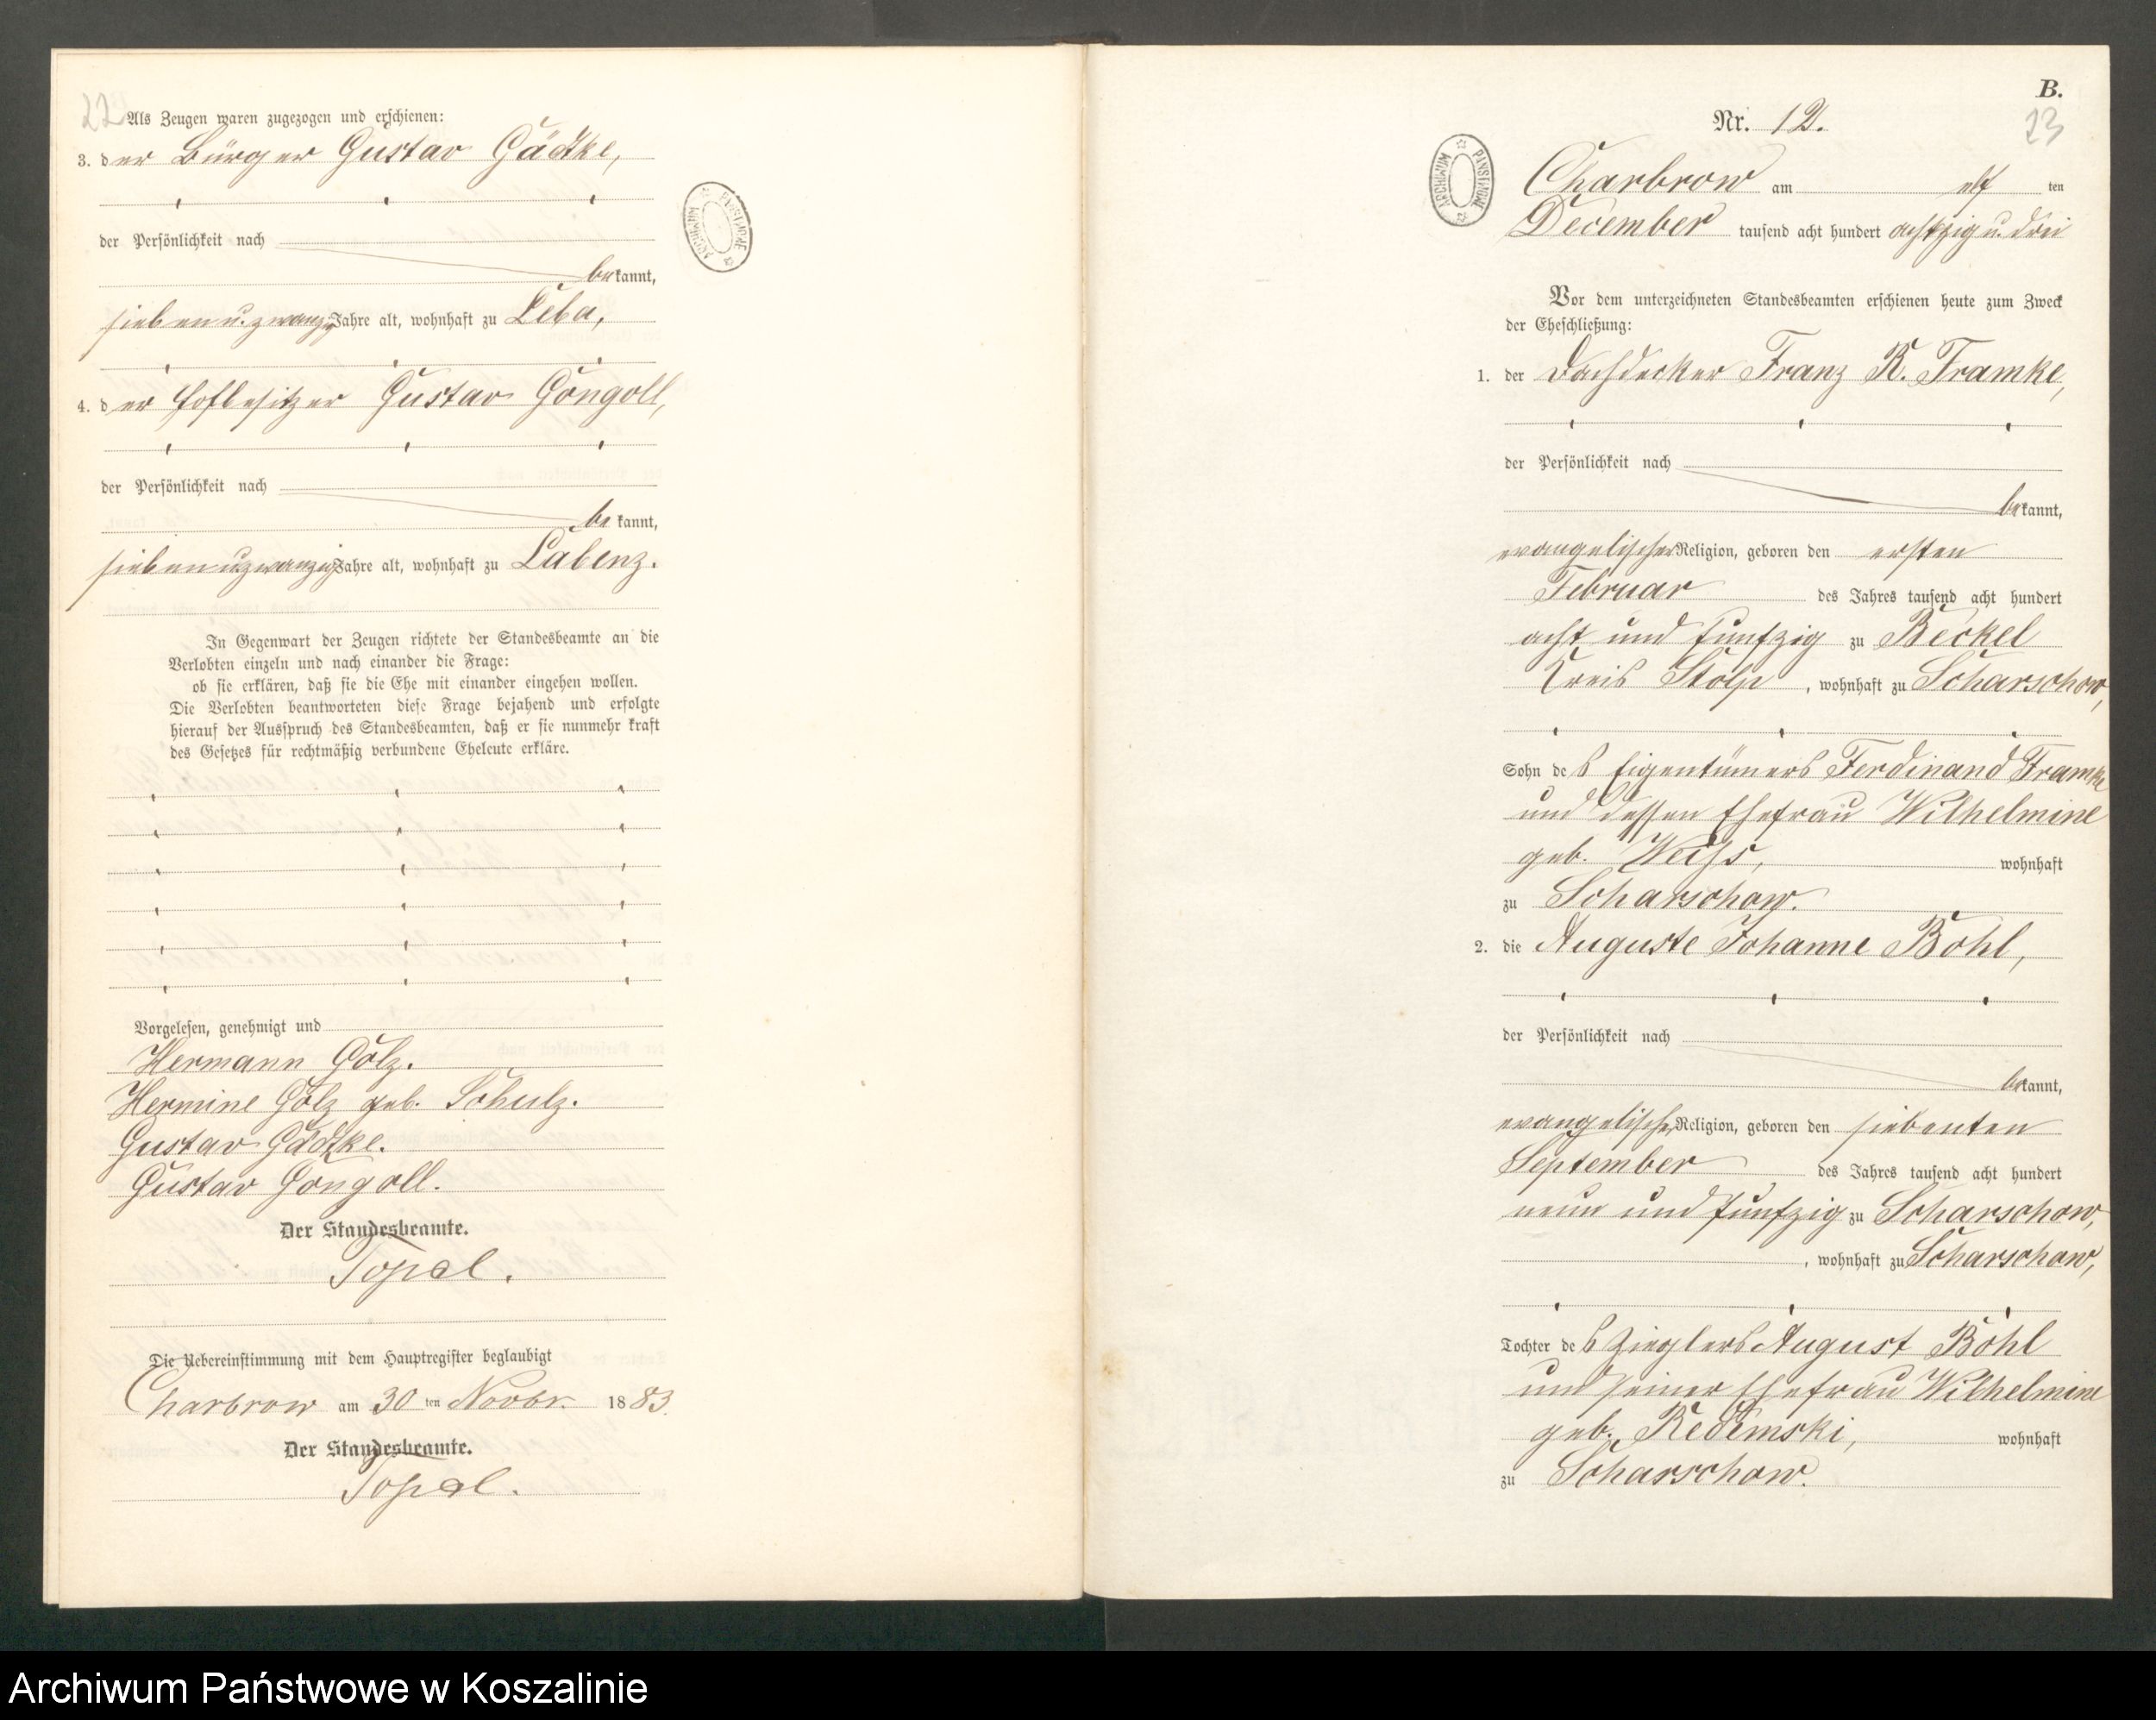 22
Als Zeugen waren zugezogen und erschienen:
3. der Bürger Gustav Gädtke,
der Persönlichkeit nach
bekannt,
sieben u. zwanzig Jahre alt, wohnhaft zu Leba,
4. der Hofbesitzer Gustav Gongoll,
der Persönlichkeit nach
bekannt,
sieben u zwanzig Jahre alt, wohnhaft zu Labenz.
In Gegenwart der Zeugen richtete der Standesbeamte an die
Verlobten einzeln und nach einander die Frage:
ob sie erklären, daß sie die Ehe mit einander eingehen wollen.
Die Verlobten beantworteten diese Frage bejahend und erfolgte
hierauf der Ausspruch des Standesbeamten, daß er sie nunmehr kraft
des Gesetzes für rechtmäßig verbundene Eheleute erkläre.
Vorgelesen, genehmigt und
Hermann Gölz.
Hermine Gölz geb. Schulz.
Gustav Gädtke.
Gustav Gongoll.
Der Standesbeamte.
Topel.
Die Uebereinstimmung mit dem Hauptregister beglaubigt
Charbrow am 30 ten Novbr. 1883.
Der Standesbeamte.
Topel.
ARCHIWUM PAŃSTWOWE
B.
Nr. 12.
23
ARCHIWUM PAŃSTWOWE
Charbrow am elf ten
December tausend acht hundert achtzig u. drei
Vor dem unterzeichneten Standesbeamten erschienen heute zum Zweck
der Eheschließung:
1. der Dachdecker Franz R. Tramke,
der Persönlichkeit nach
bekannt,
evangelischer Religion, geboren den ersten
Februar des Jahres tausend acht hundert
acht und funfzig zu Beckel
Kreis Stolp, wohnhaft zu Scharschow,
Sohn des Eigentümers Ferdinand Tramke
und dessen Ehefrau Wilhelmine
geb. Weiss, wohnhaft
zu Scharschow.
2. die Auguste Johanne Bohl,
der Persönlichkeit nach
bekannt,
evangelischer Religion, geboren den siebenten
September des Jahres tausend acht hundert
neun und funfzig zu Scharschow,
, wohnhaft zu Scharschow,
Tochter des Zieglers August Bohl
und seiner Ehefrau Wilhelmine
geb. Redemski, wohnhaft
zu Scharschow.
Archiwum Państwowe w Koszalinie